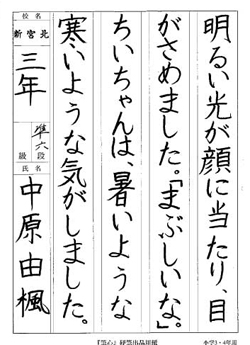 明るい光が顔に当たり、目
がさめました。「まぶしいな。」
ちいちゃんは、暑いような
寒いような気がしました。
校名
新宮北
三年
準六段
級
氏名
中原由楓
小学3・4年用